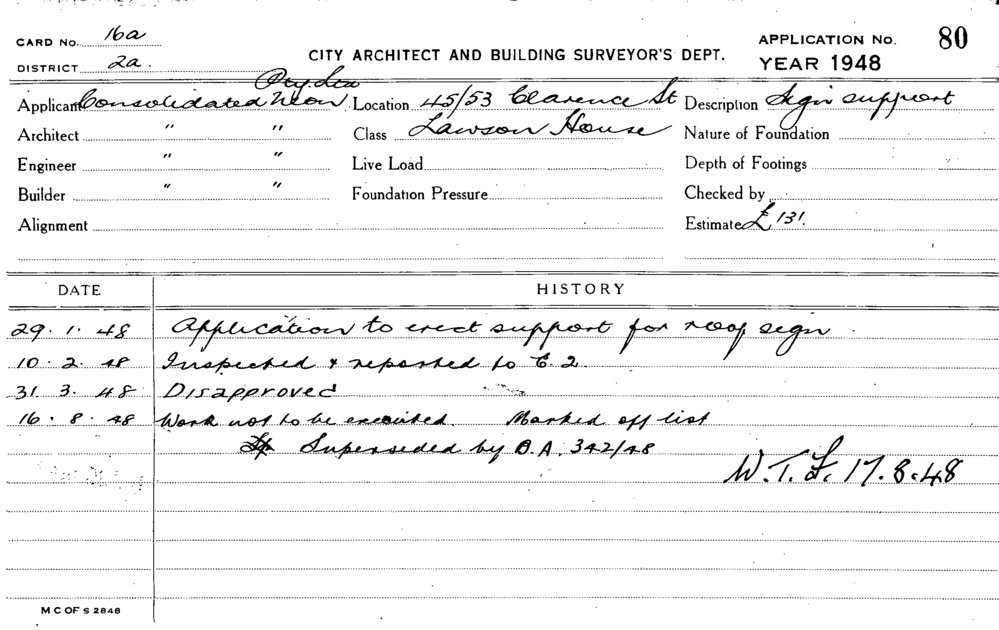 CARD No. 16a
DISTRICT 2a.
CITY ARCHITECT AND BUILDING SURVEYOR'S DEPT.
APPLICATION No. 80
YEAR 1948
Pty. Ltd
Applicant Consolidated Neon. Location 45/53 Clarence St Description Sign support
Architect " " Class Lawson House Nature of Foundation
Engineer " " Live Load Depth of Footings
Builder " " Foundation Pressure Checked by
Alignment Estimate £131.
DATE HISTORY
29. 1. 48 Application to erect support for roof sign.
10. 2. 48 Inspected & reported to C. 2.
31. 3. 48 Disapproved
16. 8. 48 Work not to be executed. Marked off list
Superseded by B.A. 342/48
W. T. L. 17. 8. 48
M C OF S 2848